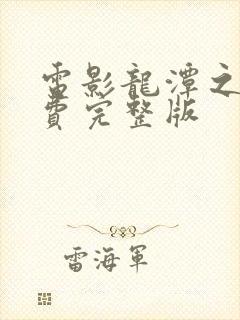 雷影龍潭之
費完整版
雷海軍